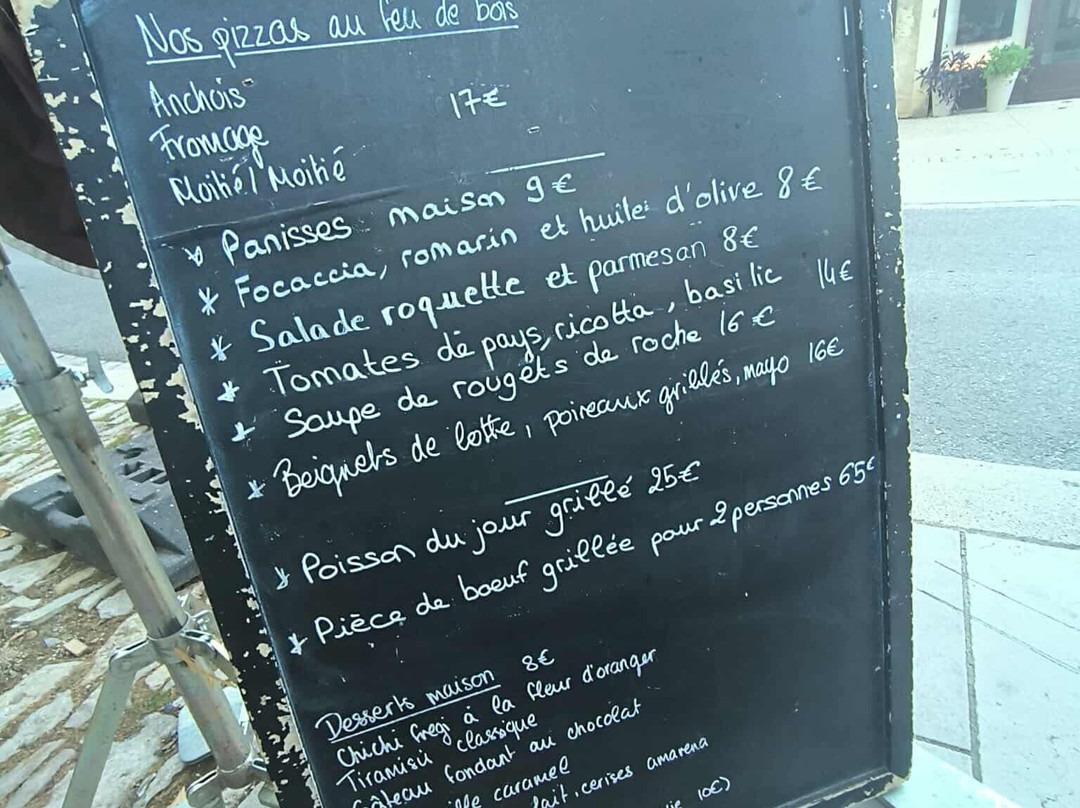 Nos pizzas au feu de bois
Anchois
Fromage 17€
Moitié/Moitié
Panisses maison 9€
* Focaccia, romarin et huile d'olive 8€
* Salade roquette et parmesan 8€
* Tomates de pays, ricotta, basilic 14€
* Soupe de rougets de roche 16€
* Beignets de lotte, poireaux grillés, mayo 16€
* Poisson du jour grillé 25€
* Pièce de boeuf grillée pour 2 personnes 65€
Desserts maison 8€
Chichi fregi à la fleur d'oranger
Tiramisù classique
Gâteau fondant au chocolat
caramel
lait, cerises amarena
10€)